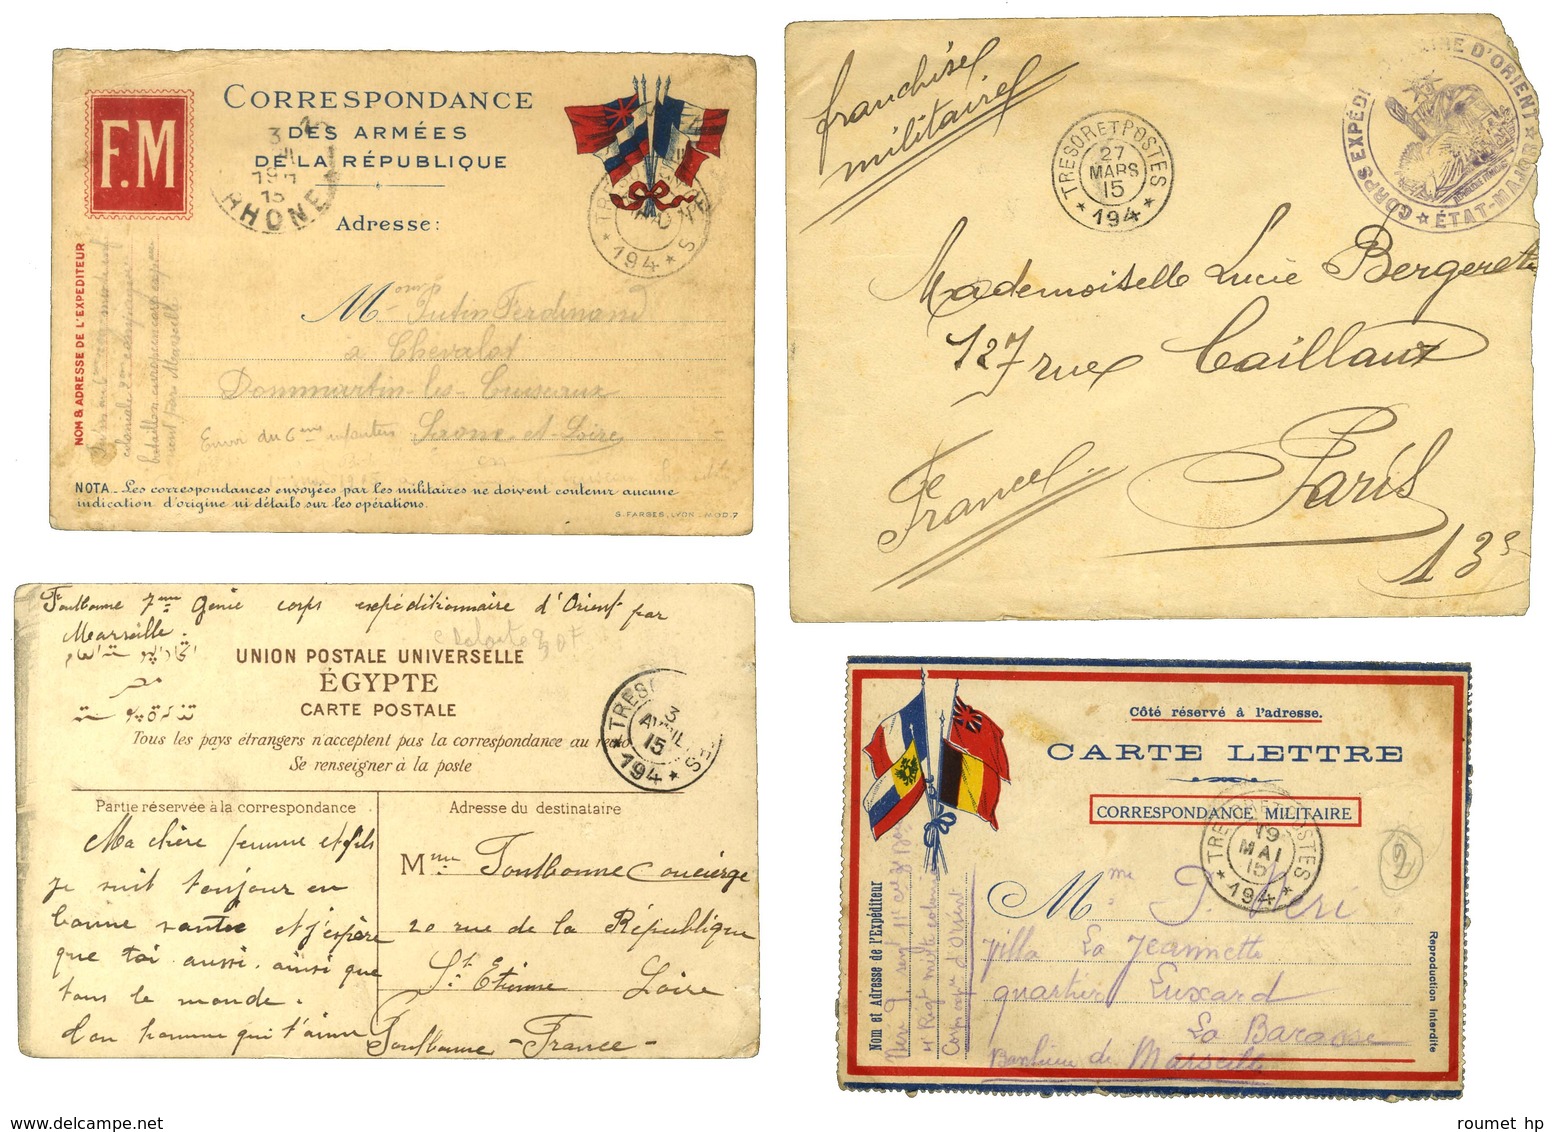 F.M
CORRESPONDANCE
DES ARMÉES
DE LA RÉPUBLIQUE
Adresse:
RHONE
★ 194 ★
NOM & ADRESSE DE L'EXPEDITEUR
Mme Putin Ferdinand
à Chevalot
Dommartin-les-Cuiseaux
Envoi du 6eme Saone-et-Loire
NOTA_Les correspondances envoyées par les militaires ne doivent contenir aucune
indication d'origine ni détails sur les opérations.
S. FARGES, LYON _ MOD.7
franchise
militaire
TRESOR ET POSTES
27
MARS
15
★ 194 ★
CORPS EXPÉDI IRE D'ORIENT
★ ÉTAT-MAJOR ★
Mademoiselle Lucie Bergerette
127 rue Caillaux
Paris
France
13e
Toulbonne 7eme Genie corps expéditionnaire d'Orient par
Marseille.
UNION POSTALE UNIVERSELLE
ÉGYPTE
CARTE POSTALE
Tous les pays étrangers n'acceptent pas la correspondance au recto
Se renseigner à la poste
3
AVRIL
15
★ 194 ★
Partie réservée à la correspondance
Adresse du destinataire
Ma chère femme et fils
je suit toujour en
bonne santee et j'espère
que toi aussi. ainsi que
tous le monde.
ton homme qui t'aime
Toulbonne - France -
Mme Toulbonne Concierge
20 rue de la République
St. Etienne Loire
Côté réservé à l'adresse.
CARTE LETTRE
CORRESPONDANCE MILITAIRE
TRESOR ET POSTES
19
MAI
15
★ 194 ★
2
Nom et Adresse de l'Expéditeur
4e Regt mixte colonial
Corps expre d'Orient
Mme P. Véri
villa La Jeannette
quartier Luxard
La Barasse
Banlieue de Marseille
Reproduction Interdite
roumet hp